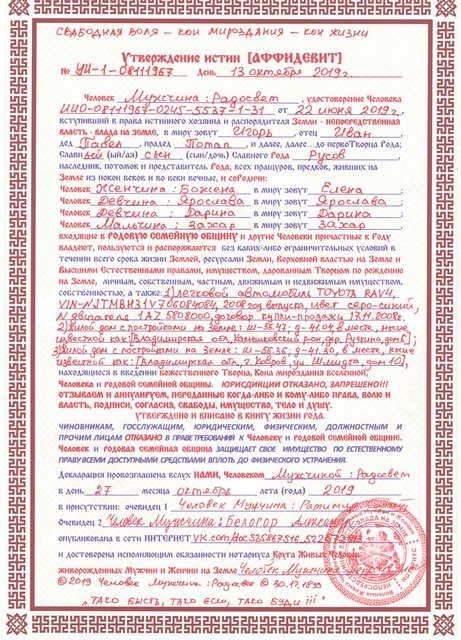 СВОБОДНАЯ ВОЛЯ - КОН МИРОЗДАНИЯ - КОН ЖИЗНИ
Утверждение истин [АФФИДЕВИТ]
№ УИ-1-08111967 День 13 октября 2019г.
Человек Мужчина: Радосвет, удостоверение Человека
ИЦО-08111967-0245-5537-1-31 от 22 июня 2019г.,
вступивший в права истинного хозяина и распорядителя Земли - непосредственная
власть - влада на земле, в миру зовут Игорь, отец Иван
дед Павел, прадед Потап, и далее, далее...до первоТворца Рода;
Славный (ый/ая) сын (сын/дочь) Славного Рода Русов,
наследник, потомок и представитель Рода, всех пращуров, предков, живших на
Земле из покон веков и во веки вечные, и соРодичи:
Человек Женчина: Божена в миру зовут Елена;
Человек Девчина: Ярослава в миру зовут Ярослава;
Человек Девчина: Дарина в миру зовут Дарина;
Человек Мальчина: Захар в миру зовут Захар;
входящие в РОДОВУЮ СЕМЕЙНУЮ ОБЩИНУ и другие Человеки причастные к Роду
владеют, пользуются и распоряжаются без каких-либо ограничительных условий в
течении всего срока жизни Землей, ресурсами Земли, Верховной властью на Земле и
Высшими Естественными правами, имуществом, дарованным Творцом по рождению
на Земле, личным, собственным, частным, движимым и недвижимым имуществом,
собственностью, а также: 1) легковой автомобиль TOYOTA RAV4,
2008 год выпуска, цвет серо-синий,
N двигателя 1AZ 5808000, договор купли-продажи 17.11.2008г.
2) Жилой дом с постройками на Земле: ш-56.47; д-41.04, в месте, ныне
известной как: [Владимирская обл, Камешковский р-он, дер. Ручкино, дом 6];
3) Жилой дом с постройками на земле: ш-56.36; д-41.30, в месте, ныне
известной как: [Владимирская обл, г. Ковров, ул. Шмидта, дом 10],
находящиеся в введении божественного Творца, Кона мироздания вселенной,
Человека и родовой семейной общины. ЮРИСДИКЦИИ ОТКАЗАНО, ЗАПРЕЩЕНО!!!
отзываем и аннулируем, переданные когда-либо и кому-либо права, волю и
власть, подписи, согласия, свободы, имущество, тело и душу.
УТВЕРЖДЕНО и ВПИСАНО в КНИГУ ЖИЗНИ РОДА.
ЧИНОВНИКАМ, ГОССЛУЖАЩИМ, ЮРИДИЧЕСКИМ, ФИЗИЧЕСКИМ, ДОЛЖНОСТНЫМ И
ПРОЧИМ ЛИЦАМ ОТКАЗАНО В ПРАВЕ ТРЕБОВАНИЯ к Человеку и родовой семейной общине.
Человек и родовая семейная община ЗАЩИЩАЕТ СВОЕ ИМУЩЕСТВО ПО ЕСТЕСТВЕННОМУ
ПРАВУ ВСЕМИ ДОСТУПНЫМИ СРЕДСТВАМИ ВПЛОТЬ ДО ФИЗИЧЕСКОГО УСТРАНЕНИЯ.
Декларация провозглашена вслух НАМИ, Человеком Мужчиной: Радосвет
в день 27 месяца октябрь лета (года) 2019
в присутствии: очевидец 1 Человек Мужчина:
Очевидец 2 Человек Мужчина: Белогор
опубликована в сети ИНТЕРНЕТ
и достоверена исполняющим обязанности нотариуса Круга Живых Человек
живорожденных Мужчин и Женчин на Земле Человек
© 2019 Человек Мужчина: Радосвет © 30.12.1899
"ТАКО БЫСТЬ, ТАКО ЕСИ, ТАКО БУДИ !!!"